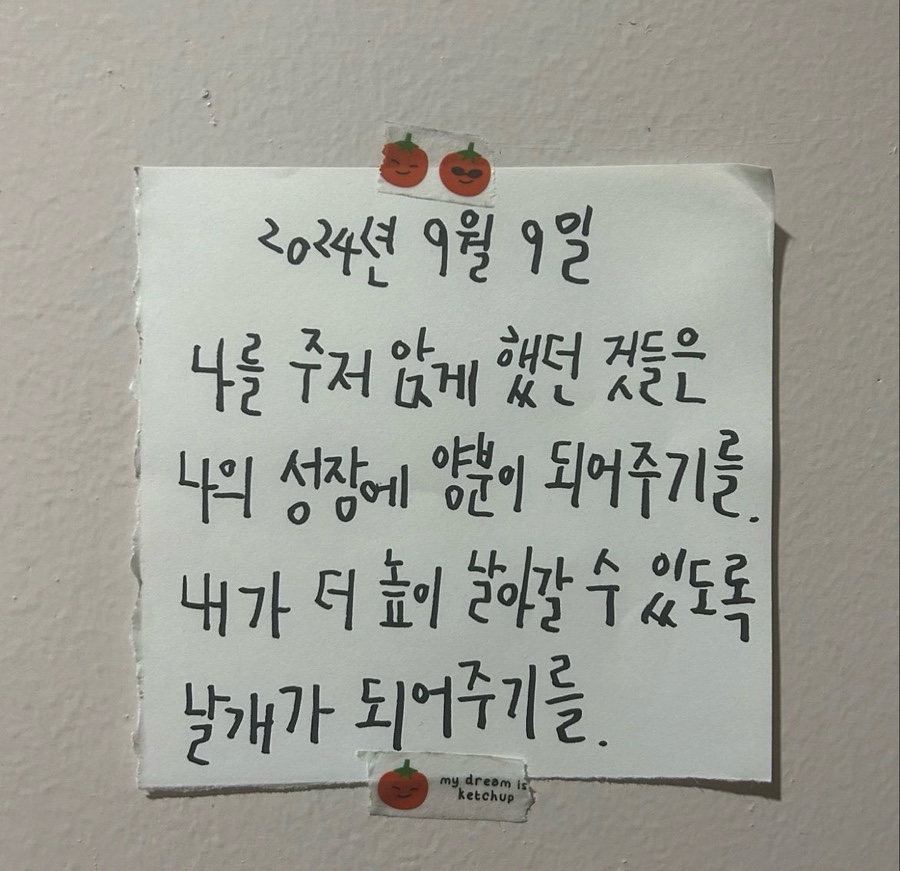 2024년 9월 9일
나를 주저 앉게 했던 것들은
나의 성장에 양분이 되어주기를.
내가 더 높이 날아갈 수 있도록
날개가 되어주기를.
my dream is
ketchup